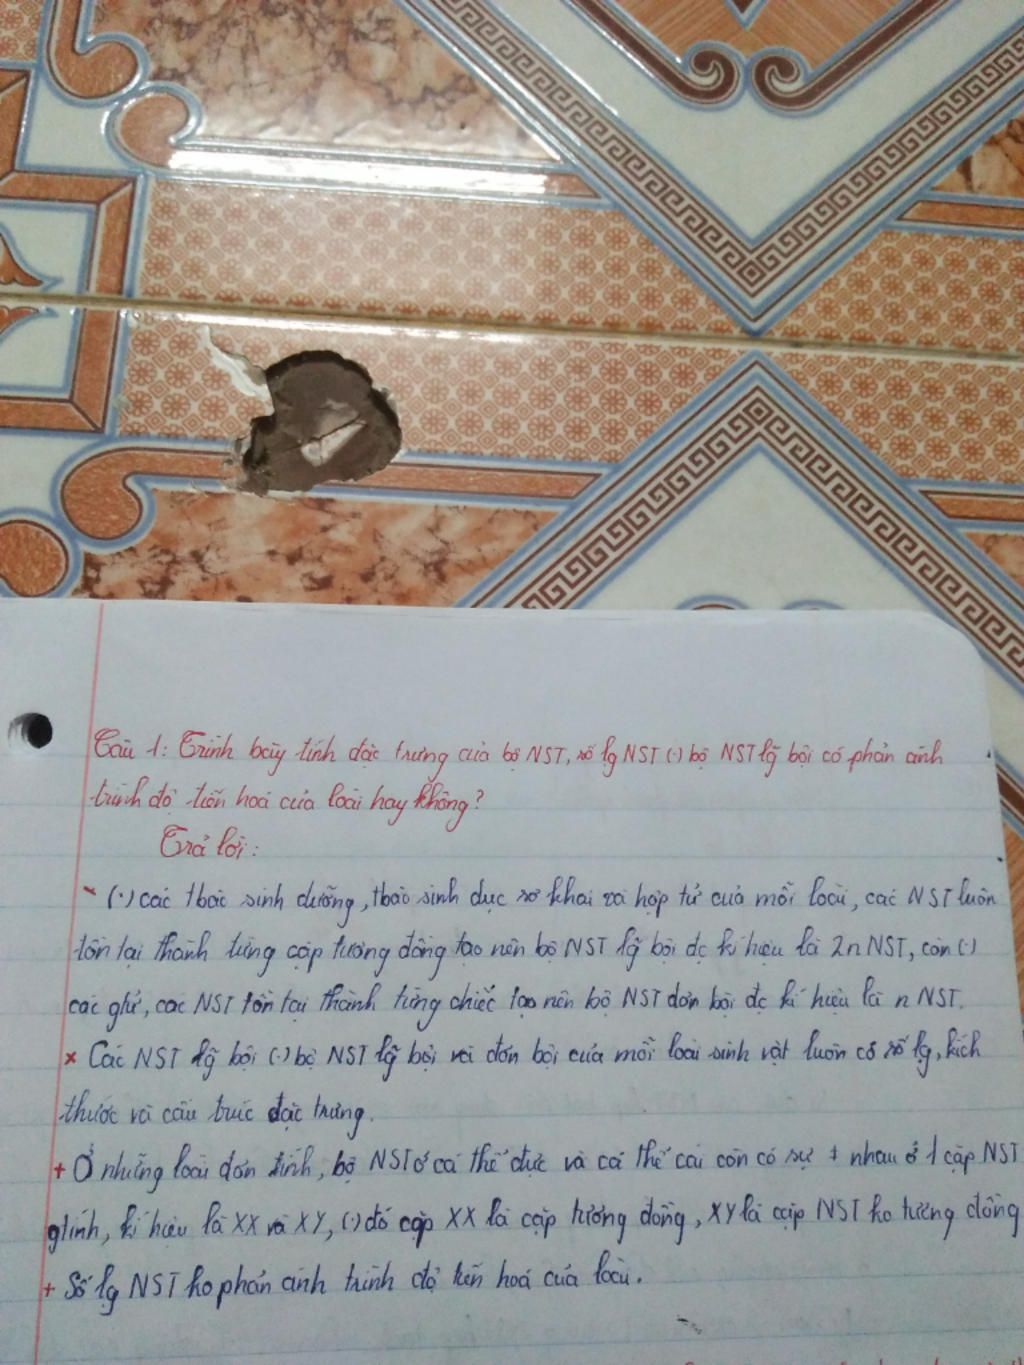 Câu 1: Trình bày tính đặc trưng của bộ NST, số lg NST (·) bộ NST lg̃ bội có phản ánh
trình độ tiến hoá của loài hay không?
Trả lời:
- (·) các tbào sinh dưỡng, tbào sinh dục sơ khai và hợp tử của mỗi loài, các NST luôn
tồn tại thành từng cặp tương đồng tạo nên bộ NST lg̃ bội đc kí hiệu là 2n NST, còn (·)
các gtử, các NST tồn tại thành từng chiếc tạo nên bộ NST đơn bội đc kí hiệu là n NST.
x Các NST lg̃ bội (·) bộ NST lg̃ bội và đơn bội của mỗi loài sinh vật luôn có số lg, kích
thước và cấu trúc đặc trưng.
+ Ở những loài đơn tính, bộ NST ở cá thể đực và cá thể cái còn có sự ≠ nhau ở 1 cặp NST
gtính, kí hiệu là XX và XY, (·) đó cặp XX là cặp tương đồng, XY là cặp NST ko tương đồng
+ Số lg NST ko phản ánh trình độ tiến hoá của loài.